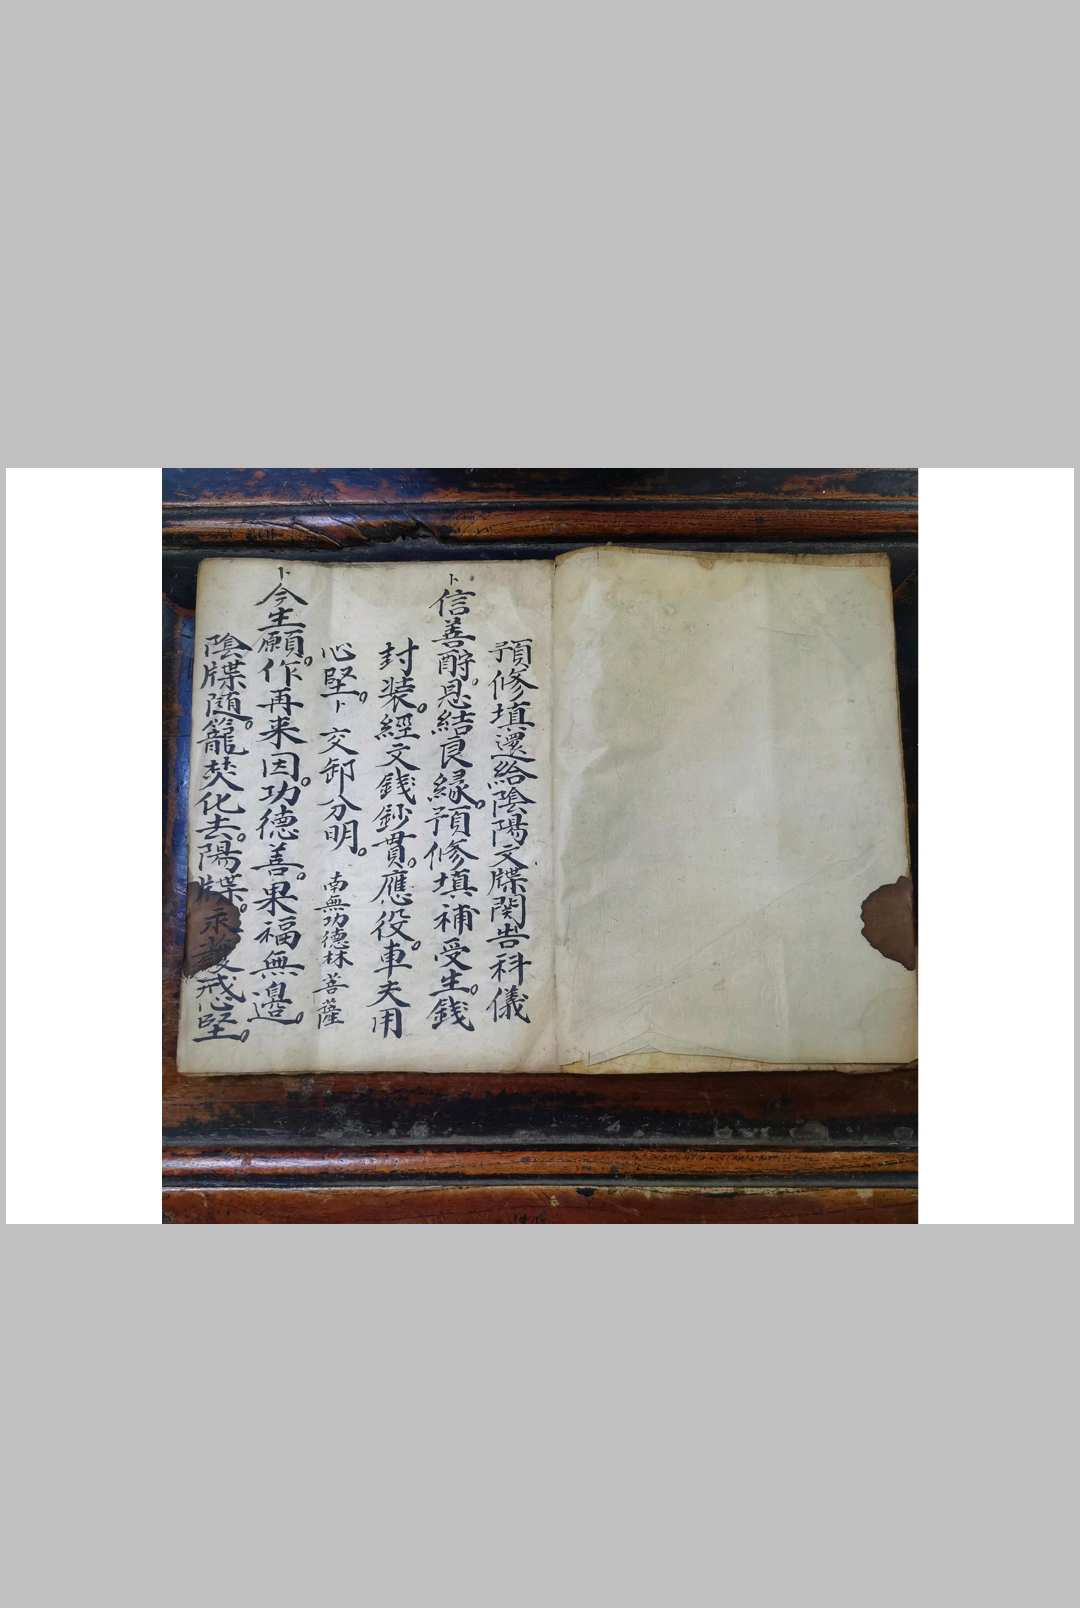 預修填還給陰陽文牒関告科儀
卜信善酧恩結良縁。預修填補受生。錢
封装。經文錢鈔貫。應役。車夫用
心堅。卜交卸分明。南無功德林菩薩
卜今生願。作再来因。功德善。果福無邊。
陰牒随。籠焚化去。陽牒。永護戒心堅。